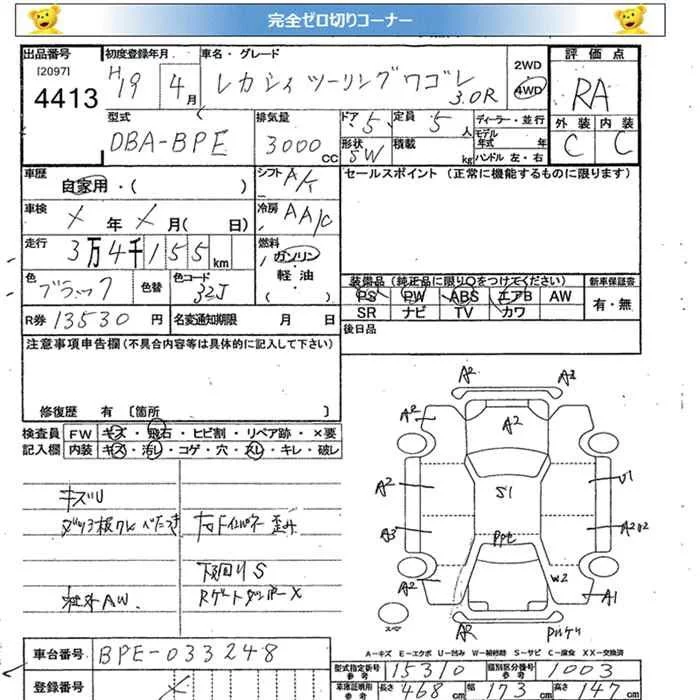 完全ゼロ切りコーナー
出品番号 初度登録年月 車名・グレード 2WD 評価点
[2097] H19 4月 レガシィツーリングワゴン 4WD
4413 3.0R RA
型式 排気量 ドア 定員 ディーラー・並行 外装 内装
DBA-BPE 3000cc 5 5人 モデル年式 年 C C
形状 SW 積載 kg ハンドル 左・右
車歴 自家用・( ) シフト A/T セールスポイント (正常に機能するものに限ります)
車検 × 年 × 月( 日) 冷房 AA/C
走行 3万4千155km 燃料 ガソリン
軽・油
( )
色 ブラック 色替 色コード 32J 装備品 (純正品に限り○をつけてください) 新車保証書
PS PW ABS エアB AW 有・無
SR ナビ TV カワ
R券 13530円 名変通知期限 月 日 後日品
注意事項申告欄(不具合内容等は具体的に記入して下さい)
修復歴 有 〔箇所 〕
検査員 FW キズ・飛石・ヒビ割・リペア跡・×要
記入欄 内装 キズ・汚レ・コゲ・穴・スレ・キレ・破レ
キズU
歪み
下回りS
社外AW
A2 A3
A2 A2
A2 S1 U1
A3 A2U2
A2 W2 A1
A2
A-キズ E-エクボ U-凹み W-補修跡 S-サビ C-腐食 XX-交換済
車台番号 BPE-033248 型式指定番号 参考 15310 類別区分番号 参考 1003
登録番号 × 車庫証明用 参考 長さ 468cm 幅 173cm 高さ 147cm